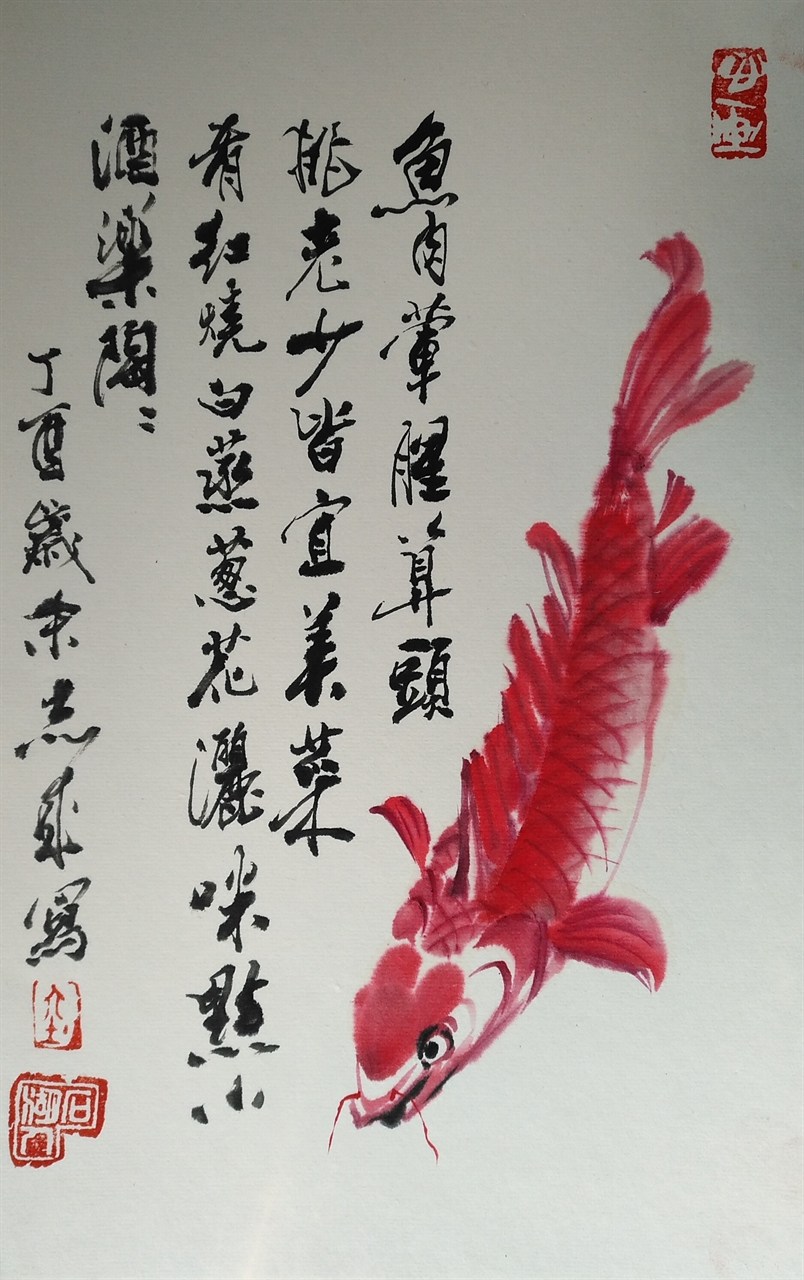 魚肉葷腥算頭
挑老少皆宜美菜
肴紅燒白蒸蔥花灑咪點小
酒樂陶〻
丁酉歲末志成寫